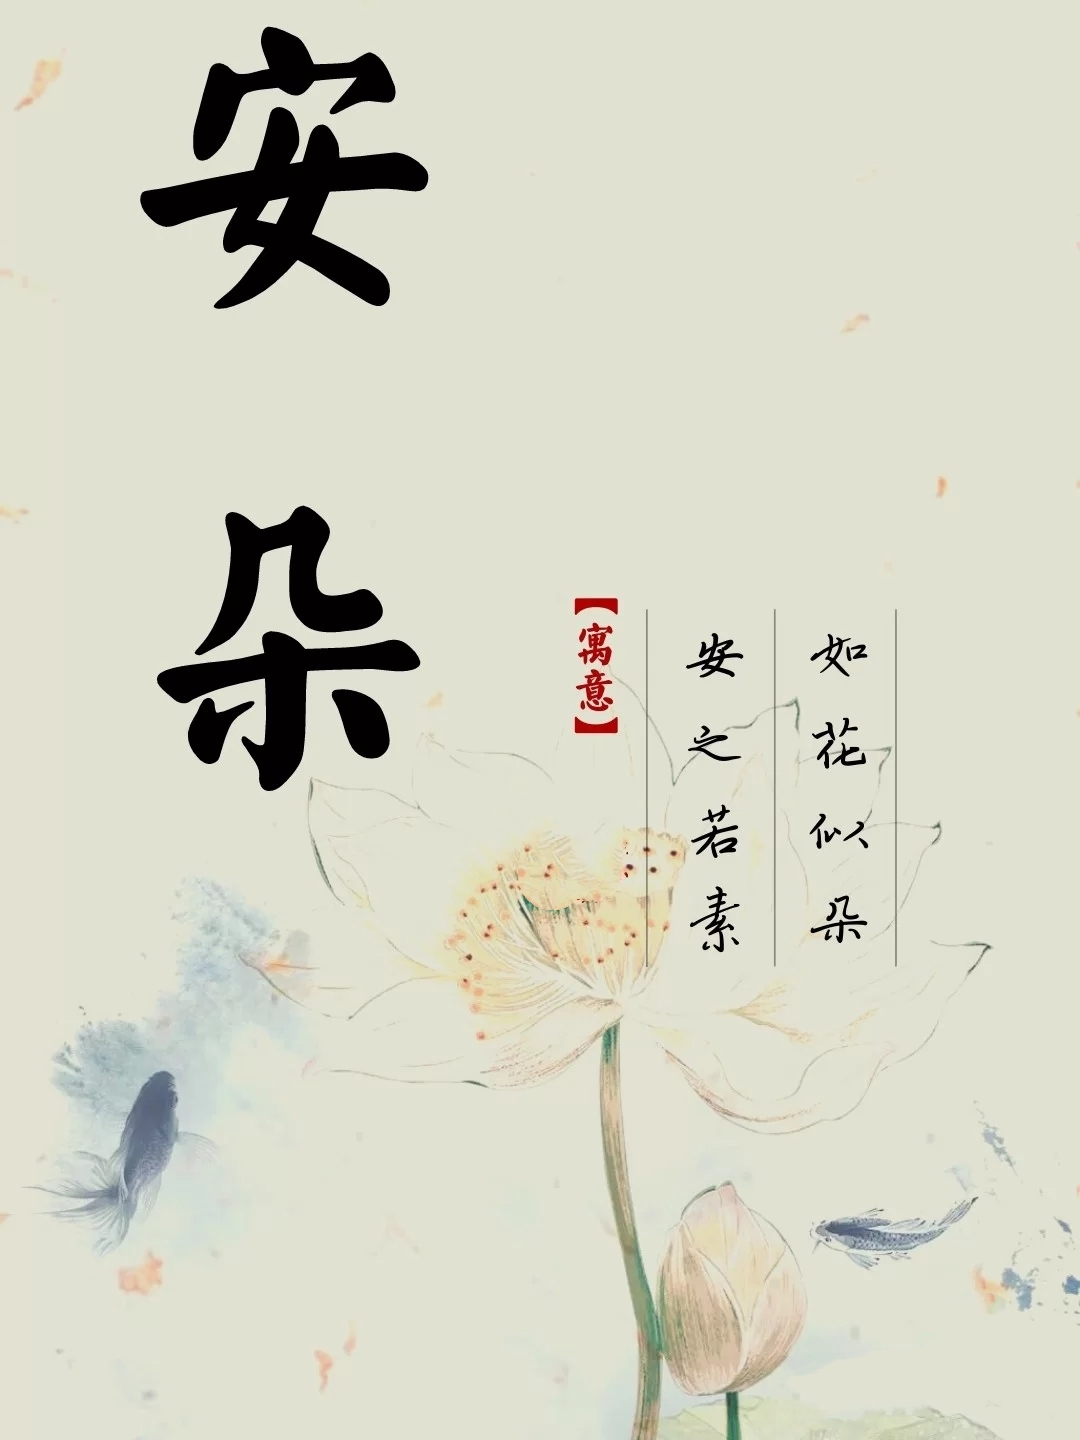 安朵
【寓意】
安之若素
如花似朵